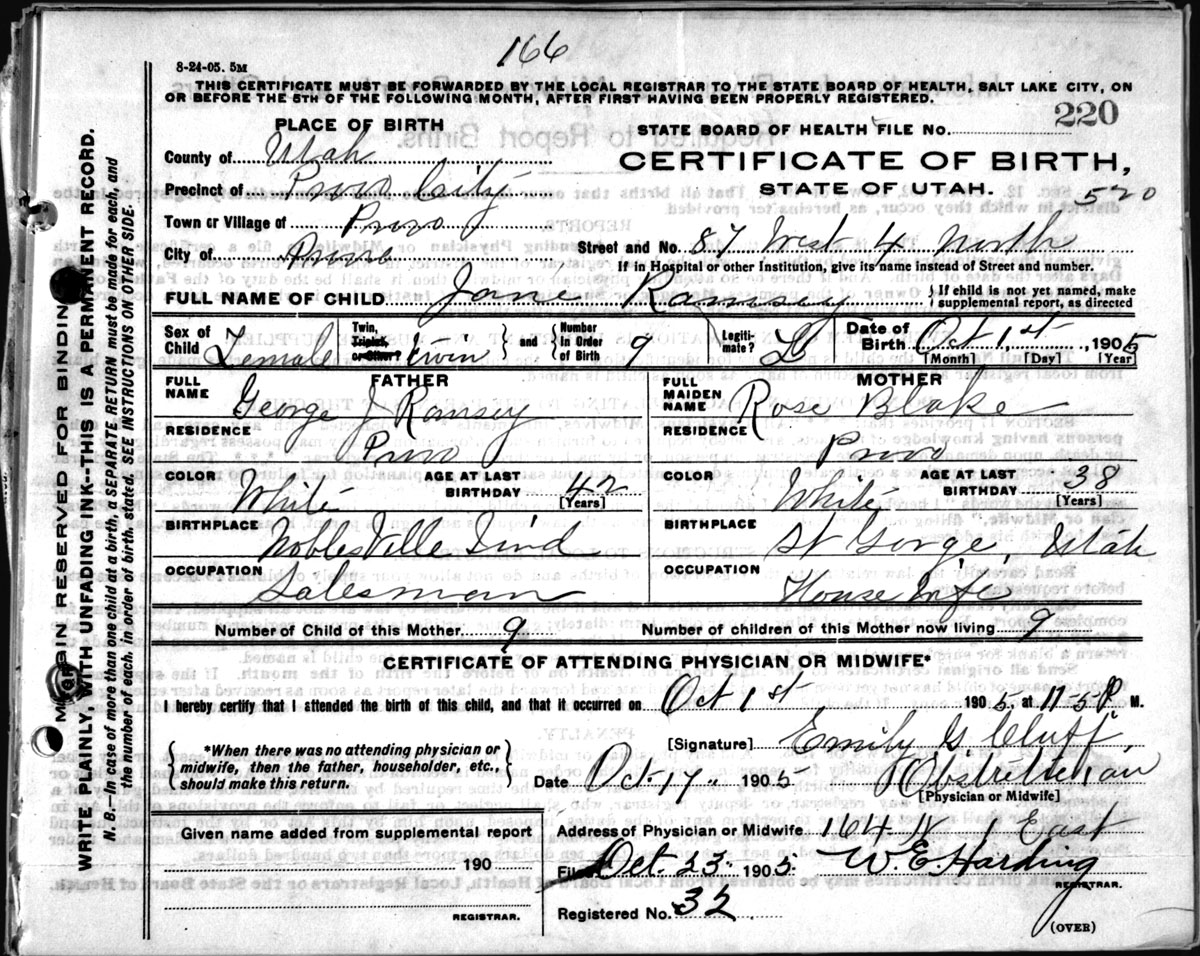 166
8-24-05. 5M
THIS CERTIFICATE MUST BE FORWARDED BY THE LOCAL REGISTRAR TO THE STATE BOARD OF HEALTH, SALT LAKE CITY, ON
OR BEFORE THE 5TH OF THE FOLLOWING MONTH, AFTER FIRST HAVING BEEN PROPERLY REGISTERED.
PLACE OF BIRTH
STATE BOARD OF HEALTH FILE NO. 220
County of Utah
CERTIFICATE OF BIRTH,
Precinct of Provo City
STATE OF UTAH. 520
Town or Village of Provo
City of Provo
Street and No. 87 West 4 North
If in Hospital or other Institution, give its name instead of Street and number.
FULL NAME OF CHILD Jane Ramsey { If child is not yet named, make
supplemental report, as directed
Sex of Child Female Twin, Triplet, or Other? Twin } and { Number in Order of Birth 9 Legiti-mate? L Date of Birth Oct 1st, 1905
[Month] [Day] [Year]
FATHER MOTHER
FULL NAME George J Ramsey FULL MAIDEN NAME Rose Blake
RESIDENCE Provo RESIDENCE Provo
COLOR White AGE AT LAST BIRTHDAY 42 [Years] COLOR White AGE AT LAST BIRTHDAY 38 [Years]
BIRTHPLACE Noblesville Ind BIRTHPLACE St Gorge, Utah
OCCUPATION Salesman OCCUPATION House Wife
Number of Child of this Mother 9 Number of children of this Mother now living 9
CERTIFICATE OF ATTENDING PHYSICIAN OR MIDWIFE*
I hereby certify that I attended the birth of this child, and that it occurred on Oct 1st 1905, at 11-5 P M.
{ *When there was no attending physician or
midwife, then the father, householder, etc.,
should make this return. }
[Signature] Emily G. Cluff,
Date Oct. 17 1905 Obstrittician
[Physician or Midwife]
Given name added from supplemental report
190
REGISTRAR.
Address of Physician or Midwife 164 1 East
Filed Oct. 23 1905 W E Harding
REGISTRAR.
Registered No. 32
(OVER)
MARGIN RESERVED FOR BINDING
WRITE PLAINLY, WITH UNFADING INK--THIS IS A PERMANENT RECORD.
N. B.--In case of more than one child at a birth, a SEPARATE RETURN must be made for each, and
the number of each, in order of birth, stated. SEE INSTRUCTIONS ON OTHER SIDE.